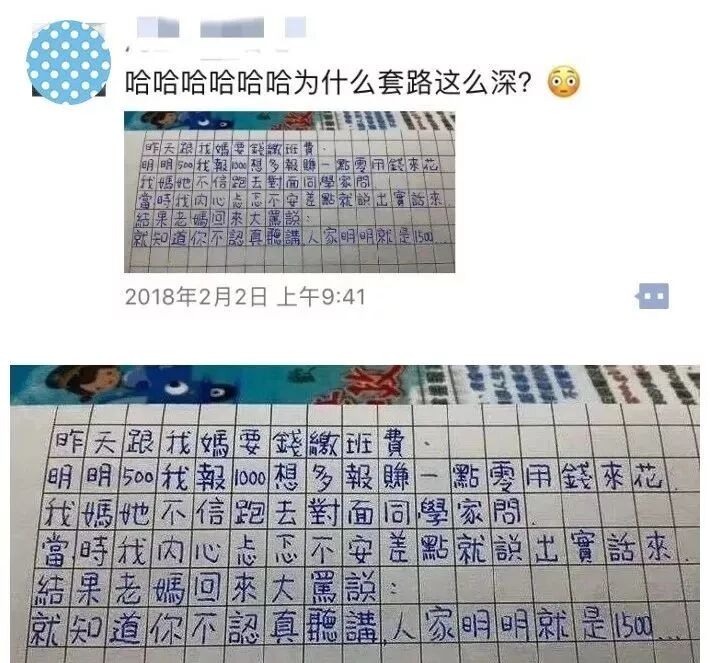 哈哈哈哈哈哈为什么套路这么深？😳
昨天跟我媽要錢繳班費.
明明500我報1000想多報賺一點零用錢來花
我媽她不信跑去對面同學家問
當時我內心忐忑不安差點就說出實話來.
結果老媽回來大罵說：
就知道你不認真聽講人家明明就是1500...
2018年2月2日 上午9:41
昨天跟我媽要錢繳班費.
明明500我報1000想多報賺一點零用錢來花.
我媽她不信跑去對面同學家問.
當時我內心忐忑不安差點就說出實話來.
結果老媽回來大罵說：
就知道你不認真聽講,人家明明就是1500...